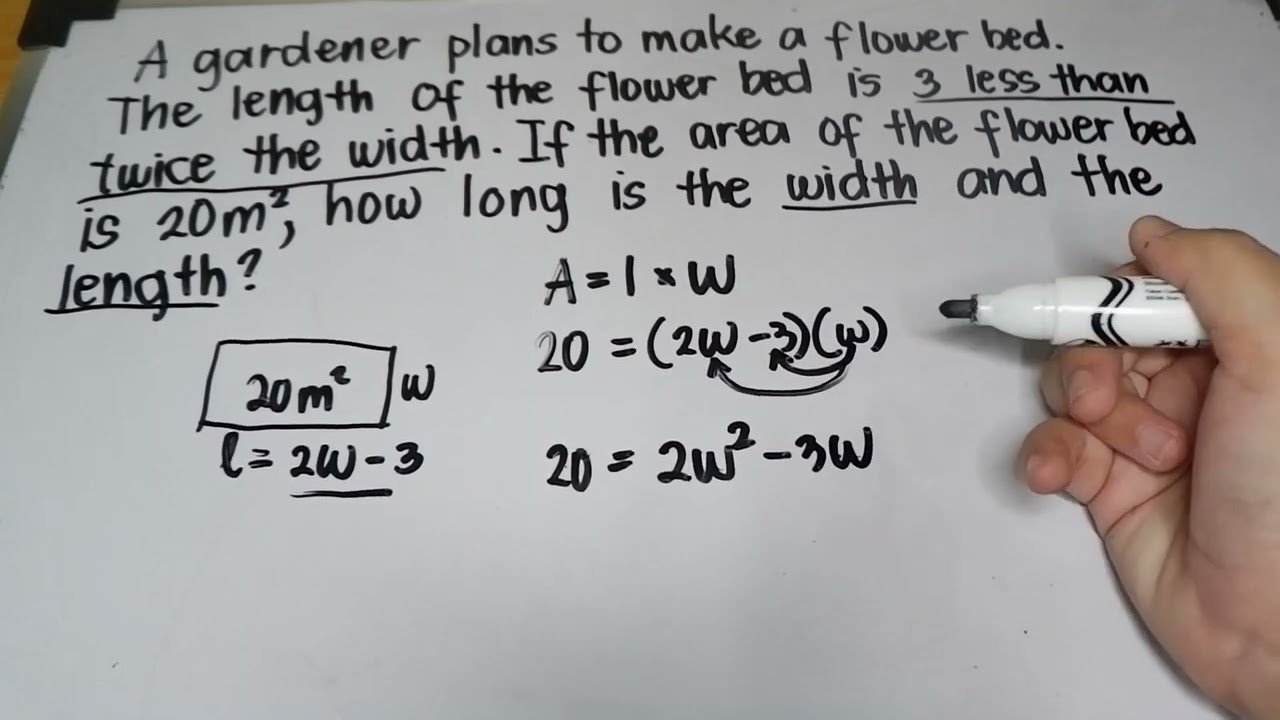 A gardener plans to make a flower bed.
The length of the flower bed is 3 less than
twice the width. If the area of the flower bed
is 20m², how long is the width and the
length?
A = l × w
20 = (2w - 3)(w)
20m² w
l = 2w - 3
20 = 2w² - 3w